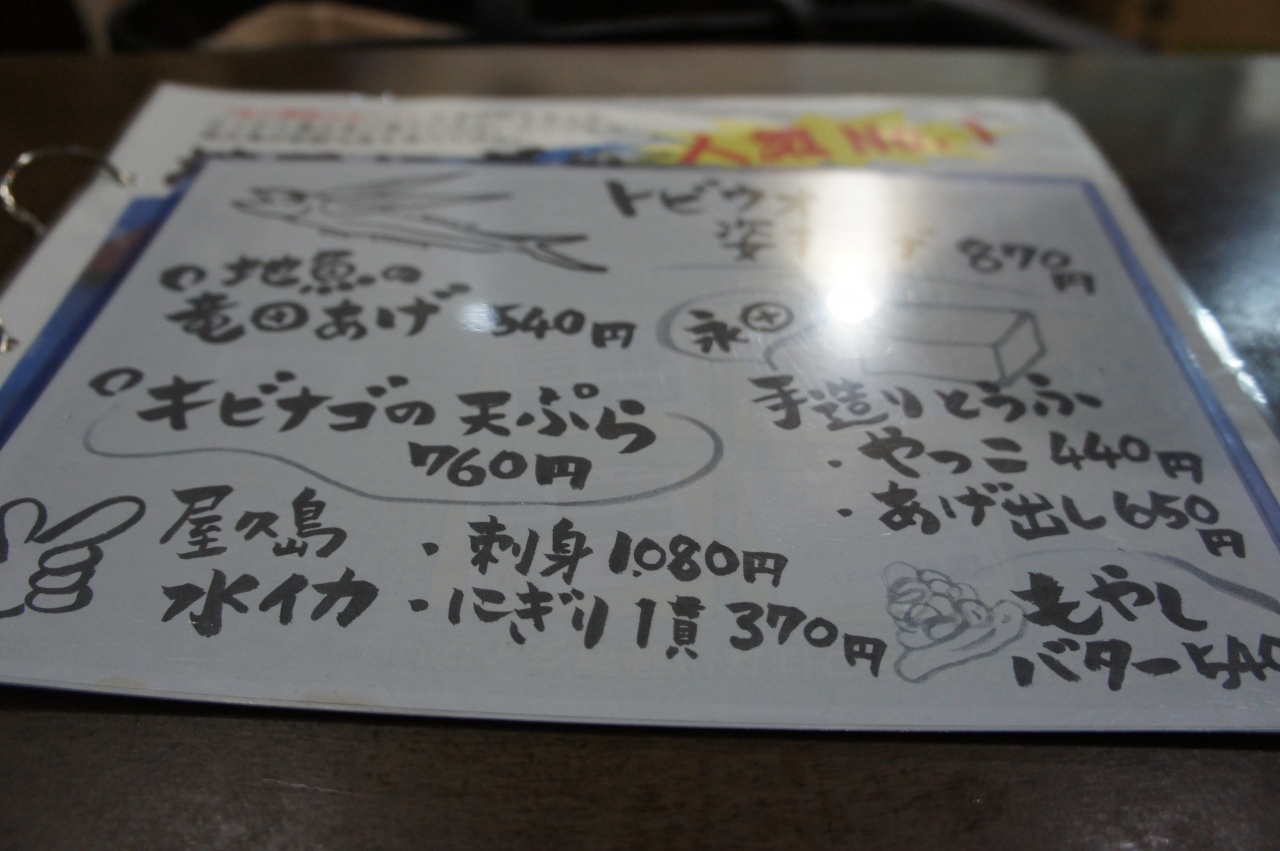 人気 No.1
トビウオ
姿
870円
地魚の
竜田あげ 540円
永田
手造りとうふ
・やっこ 440円
・あげ出し 650円
キビナゴの天ぷら
760円
屋久島
水イカ
・刺身 1,080円
・にぎり 1貫 370円
もやし
バター 540